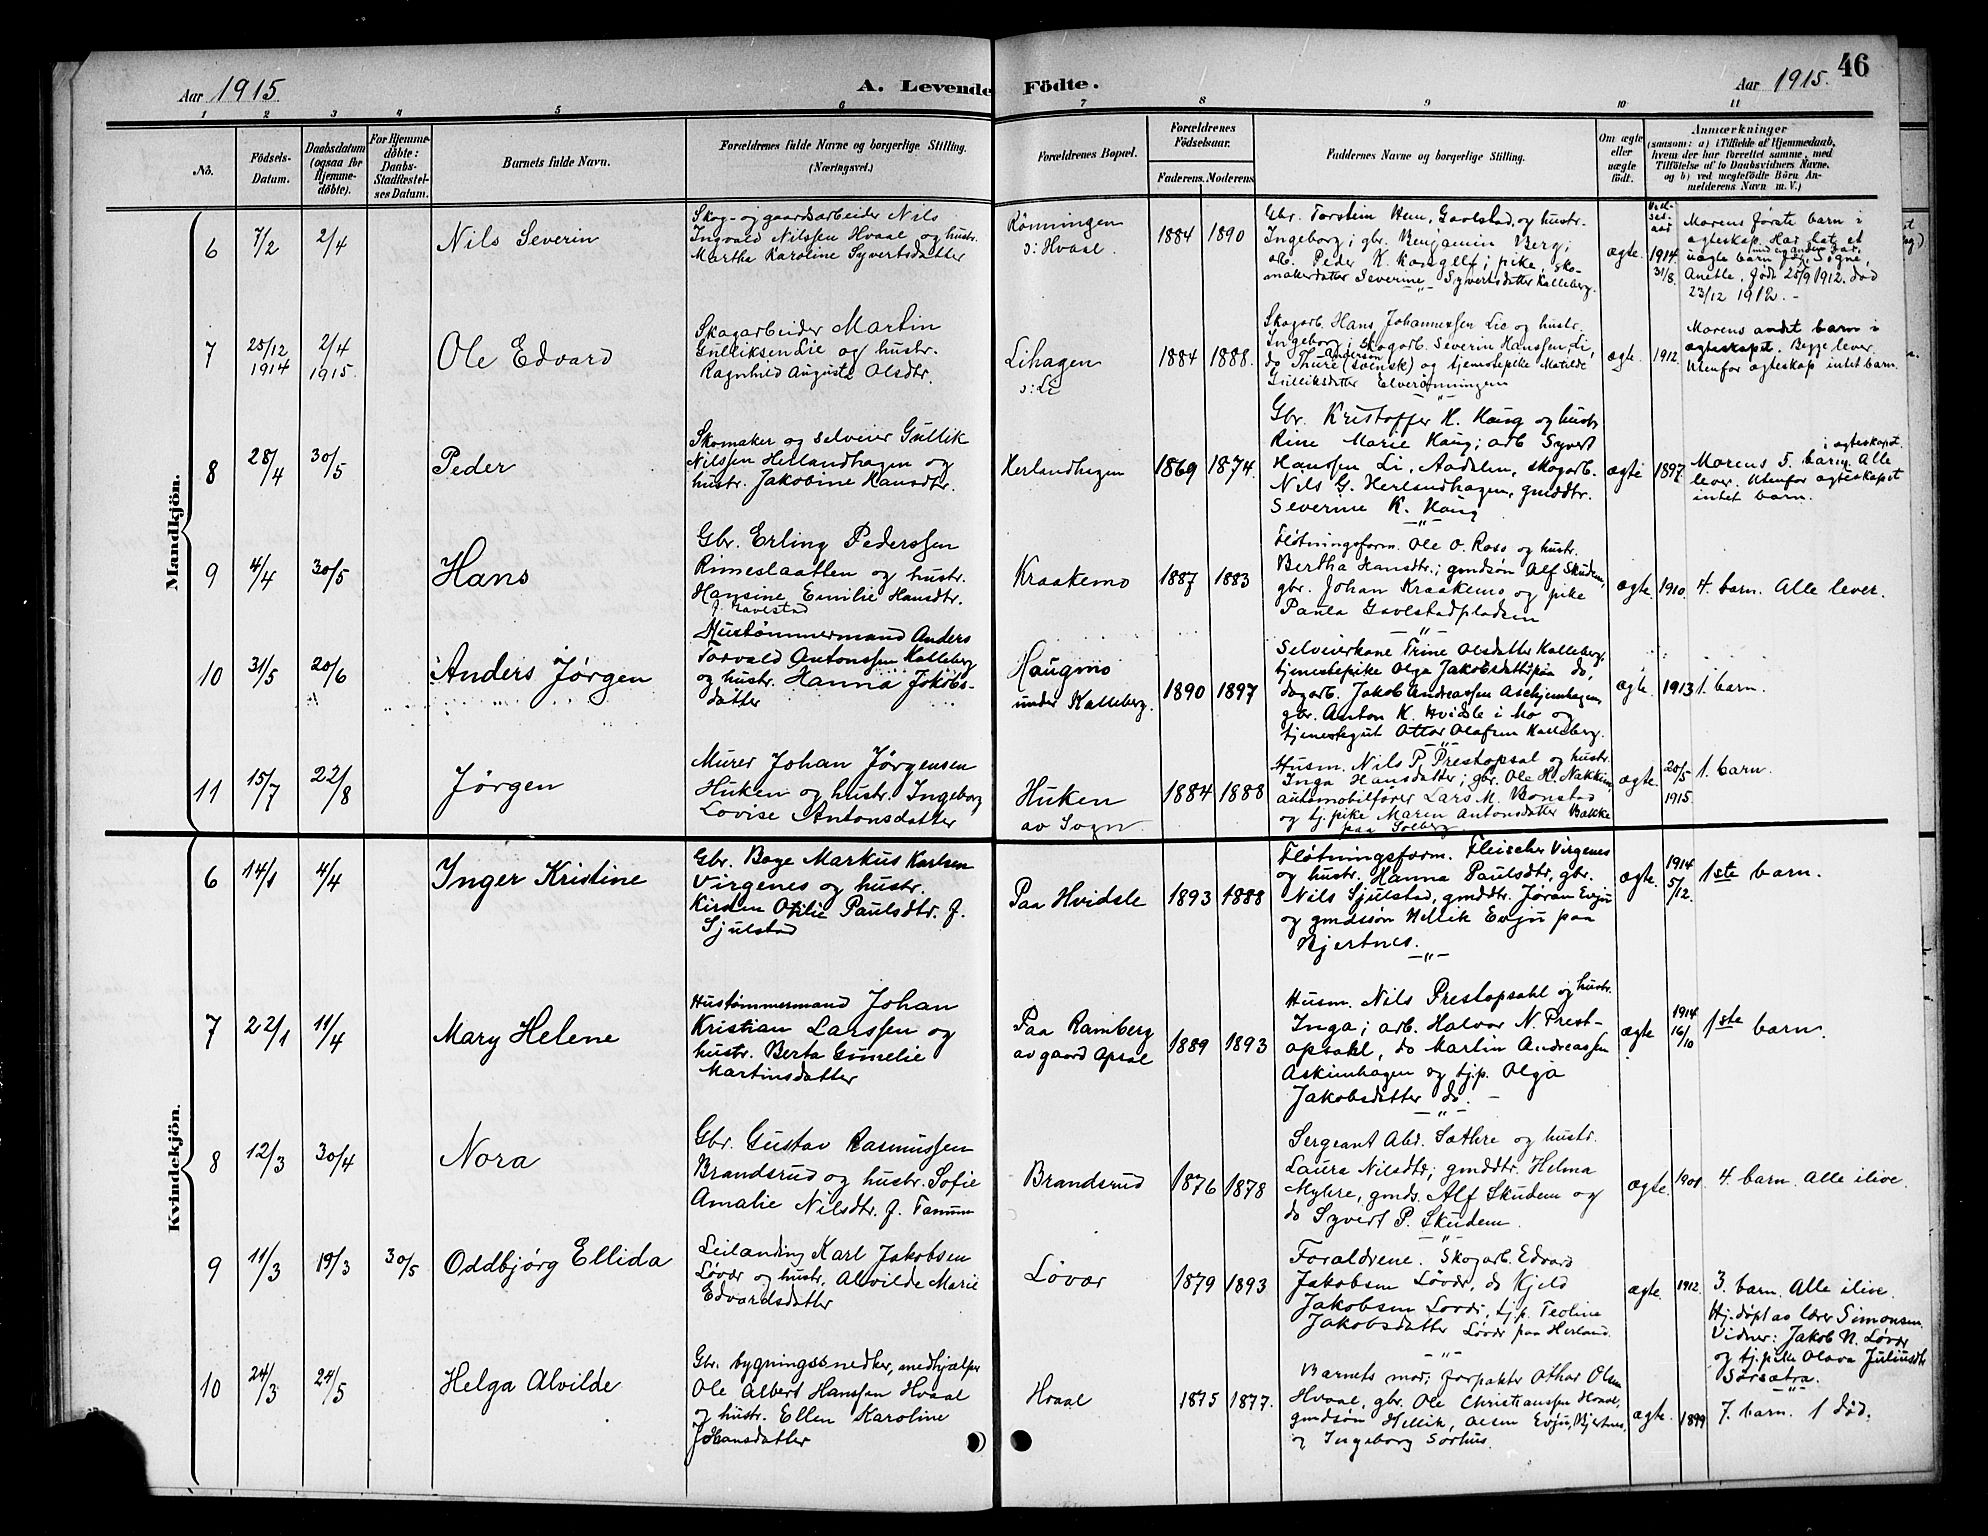 46
Aar 1915.
A. Levende Födte.
Aar 1915.
1 2 3 4 5 6 7 8 9 10 11
No.
Födsels-Datum.
Daabsdatum (ogsaa for Hjemme-döbte).
For Hjemme-döbte: Daabs-Stadfæstel-ses Datum.
Barnets fulde Navn.
Forældrenes fulde Navne og borgerlige Stilling.
(Næringsvei.)
Forældrenes Bopæl.
Forældrenes Födselsaar.
Faderens. Moderens
Faddernes Navne og borgerlige Stilling.
Om ægte eller uægte födt.
Anmærkninger
(saasom: a) i Tilfælde af Hjemmedaab,
hvem der har forrettet samme, med
Tilföielse af to Daabsvidners Navne,
og b) ved uægtefödte Börn An-
melderens Navn m. V.)
Mandkjön.
6 7/2 2/4 Nils Severin
Skog- og gaardsarbeider Nils
Ingvald Nilssen Hvaal og hustr.
Martha Karoline Syvertsdatter
Rönningen
s: Hvaal
1884 1890
Gbr. Torstein Hem, Gavlstad, og hustr.
Ingeborg; gbr. Benjamin Berg;
arb. Peder K. Kongelf; pike, sko-
makerdatter Severine Syvertsdatter Kalleberg.
ægte.
1914
31/8
Morens først barn i
ægteskap. Har hat et
uægte barn Signe,
Anette, født 25/9 1912. død
23/12 1912. -
7 25/12 1914 2/4 1915. Ole Edvard
Skogarbeider Martin
Gulliksen Lie og hustr.
Ragnhild Augusta Olsdtr.
Lihagen
s: Li
1884 1888.
Skogarb. Hans Johannessen Lie og hustr.
Ingeborg; skogarb. Severin Hanssen Li,
do Thure Anderson (svensk) og tjenestepike Matilde
Gulliksdatter Elverönningen
ægte. 1912.
Morens andet barn i
ægteskapet. Begge lever.
Utenfor ægteskap intet barn.
8 28/4 30/5 Peder
Skomaker og selveier Gullik
Nilssen Herlandhagen og
hustr. Jakobine Hansdtr.
Herlandhagen
1869 1874.
Gbr. Kristoffer H. Haug og hustr
Rine Marie Haug; arb Syvert
Hanssen Li, Aadalen, skogarb.
Nils G. Herlandhagen, gmddtr.
Severine K. Haug
ægte 1897.
Morens 5. barn i ægteskapet. Alle
lever. Utenfor ægteskapet
intet barn.
9 4/4 30/5 Hans
Gbr. Erling Pederssen
Rimeslaatten og hustr.
Hansine Emilie Hansdtr.
f. Gavlstad
Kraakemo
1887 1883
Fløtningsform. Ole O. Roso og hustr.
Bertha Hansdtr.; gmdsön Alf Skudem,
gbr. Johan Kraakemo og pike
Paula Gavlstadpladsen
ægte. 1910. 4. barn. Alle lever.
10 31/5 20/6 Anders Jørgen
Hustømmermand Anders
Torvald Antonssen Kalleberg
og hustr. Hanna Jakobs-
datter
Haugmo
under Kalleberg.
1890 1897
Selveierkone Trine Olsdatter Kalleberg,
tjenestepike Olga Jakobsdatter paa do,
dagarb. Jakob Andreassen Askjemhagen,
gbr. Anton K. Hvidsle i Mo og
tjenestegut Ottar Olafsen Kalleberg.
ægte. 1913 1. barn.
11 15/7 22/8 Jørgen
Murer Johan Jørgensen
Huken og hustr. Ingeborg
Lovise Antonsdatter
Huken
av Sogn.
1884 1888
Husm. Nils P. Prestopsal og hustr.
Inga Hansdatter; gbr. Ole H. Nakkim
automobilfører Lars M. Bonstad
og tj.pike Maren Antonsdatter Bakke
paa Solberg
ægte. 20/5 1915. 1. barn.
Kvindekjön.
6 14/1 4/4 Inger Kristine
Gbr. Boye Markus Karlsen
Virgenes og hustr.
Kirsten Otilie Paulsdtr. f.
Sjulstad
Paa Hvidsle
1893 1888
Fløtningsform. Fleischer Virgenes
og hustr. Hanna Paulsdtr, gbr.
Nils Sjulstad, gmddtr. Jøran Evju
og gmdssön Hellik Evju paa
Hjertnes.
ægte. 1914 5/12. 1ste barn.
7 22/1 11/4 Mary Helene
Hustømmermand Johan
Kristian Larssen og
hustr. Berta Gunelie
Martinsdatter
Paa Ramberg
av gaard Opsal
1889 1893
Husm. Nils Prestopsahl og hustr.
Inga; arb. Halvor N. Prest-
opsahl, do Martin Andreassen
Askimhagen og tj.p. Olga
Jakobsdatter do. -
ægte 1914 16/10 1ste barn.
8 12/3 30/4 Nora
Gbr. Gustav Rasmussen
Brandsrud og hustr. Sofie
Amalie Nilsdtr. f. Tanum
Brandsrud
1876 1878
Sergeant Alr. Sæthre og hustr.
Laura Nilsdtr; gmddtr. Helma
Myhre, gmds. Alf Skudem og
do Syvert P. Skudem.
ægte. 1901 4. barn. Alle ilive.
9 11/3 19/3 30/5 Oddbjørg Ellida
Leilænding Karl Jakobsen
Løvår og hustr. Alvilde Marie
Edvardsdatter
Løvar
1879 1893
Forældrene. Skogarb. Edvard
Jakobsen Løvår, do Kjeld
Jakobsen Løvår, tj.p. Teoline
Jakobsdatter Løvår paa Herland.
ægte. 1912.
3. barn. Alle ilive.
Hj.døpt av lærer Simonsen.
Vidner: Jakob N. Løvår
og tj.pike Olava Juliusdtr
Sørsætra.
10 24/3 24/5 Helga Alvilde
Gbr. bygningssnedker, medhjælper
Ole Albert Hanssen Hvaal
og hustr. Ellen Karoline
Johansdatter
Hvaal
1875 1877.
Barnets mor; forpakter Othar Olsen
Hvaal, gbr. Ole Christianssen Hvaal,
gmdsön Hellik Olsen Evju, Hjertnes,
og Ingeborg Sørhus.
ægte. 1899 7. barn. 1 død.